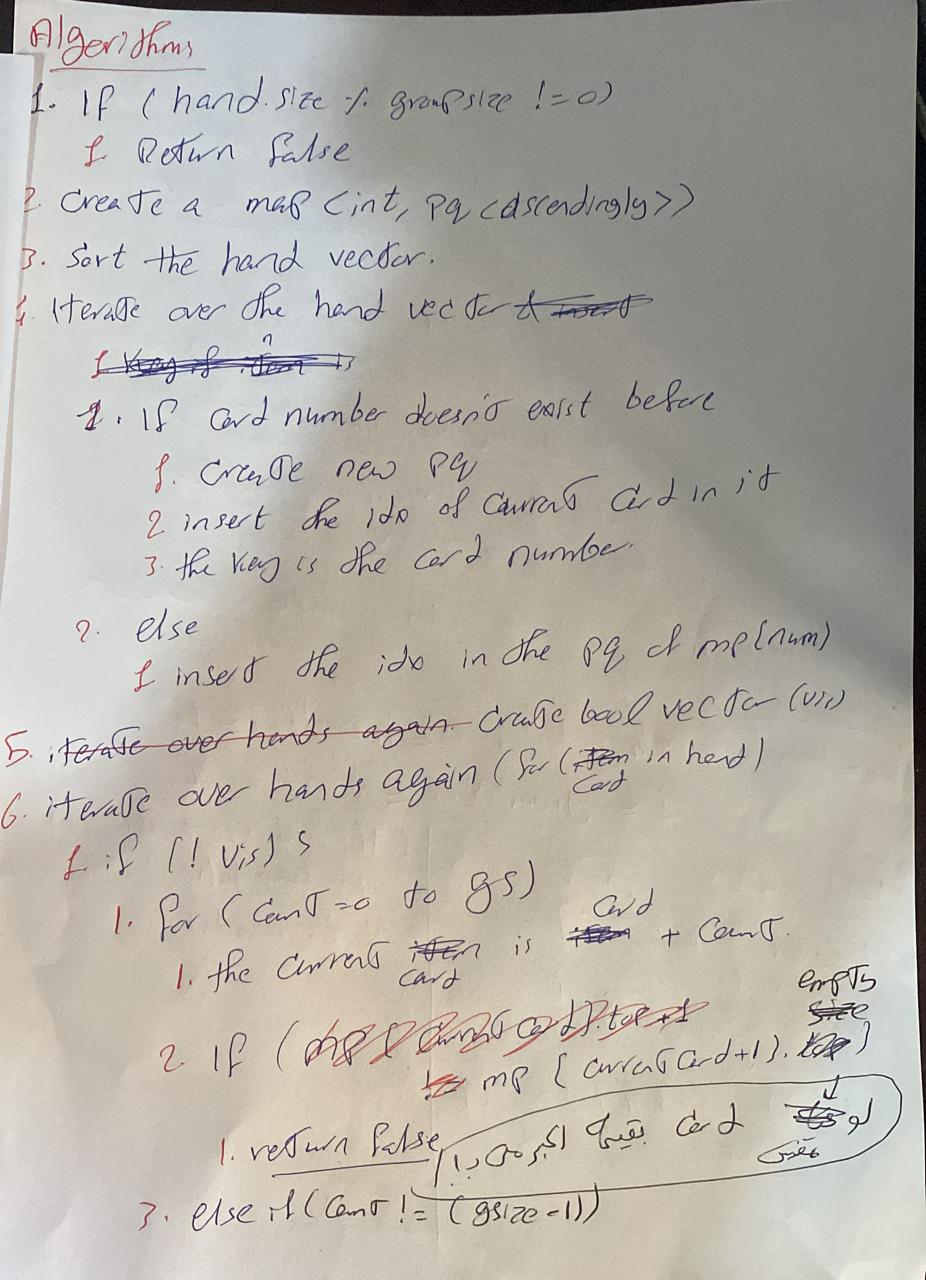 Algorithms
1. If (hand.size % groupsize != 0)
1 Return false
2. Create a map <int, pq <dscendingly>>
3. Sort the hand vector.
4. Iterate over the hand vector & insert
1 Key if item is
1. If card number doesn't exist before
1. Create new pq
2 insert the idx of current card in it
3. the key is the card number.
2. else
1 insert the idx in the pq of mp[num]
5. iterate over hands again. Create bool vector (vis)
6. iterate over hands again (for (item card in hand)
1. if (! vis) {
1. for (cont = 0 to gs)
1. the current item card is item card + cont.
empty
size
2. If (mp [current card]. top + 1
mp [current card+1]. top)
1. return false
لو مفيش card بقيمة اكبر من دا ب 1
3. else if (cont != (gsize-1))